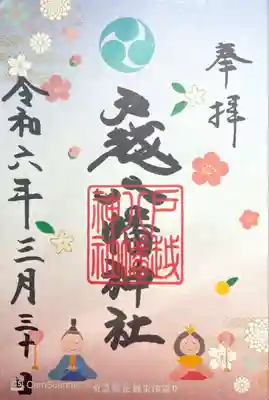 奉拝
戸越八幡神社
戸越
八幡
神社
令和六年三月三十日
CamScanner